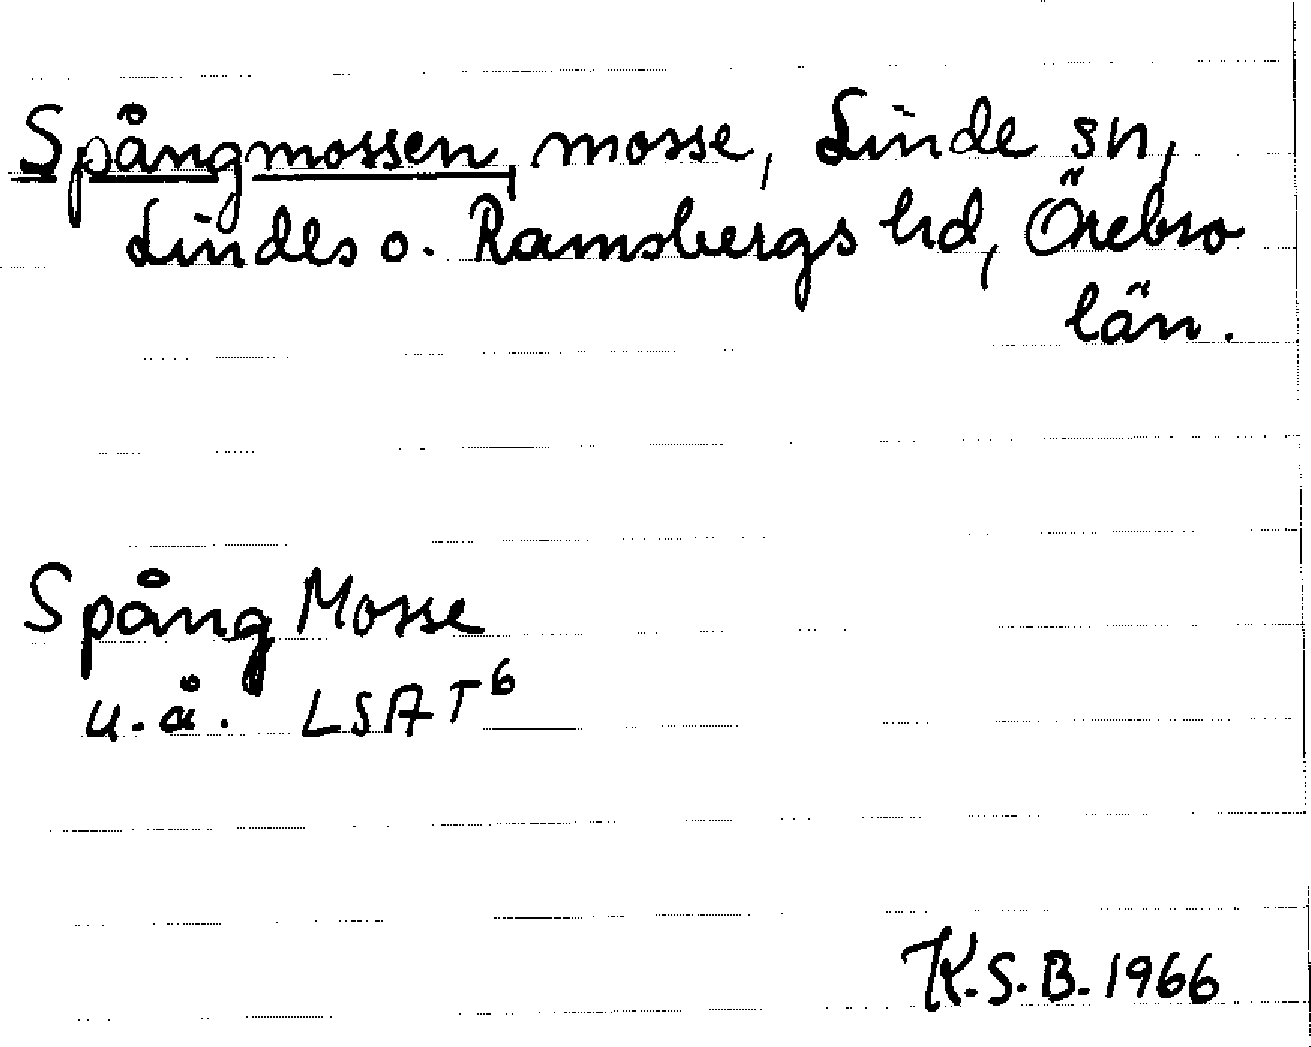 Spångmossen, mosse, Linde sn,
Lindes o. Ramsbergs hd, Örebro
län.
Spång Mosse
u.å. LSA T⁶
K.S.B. 1966